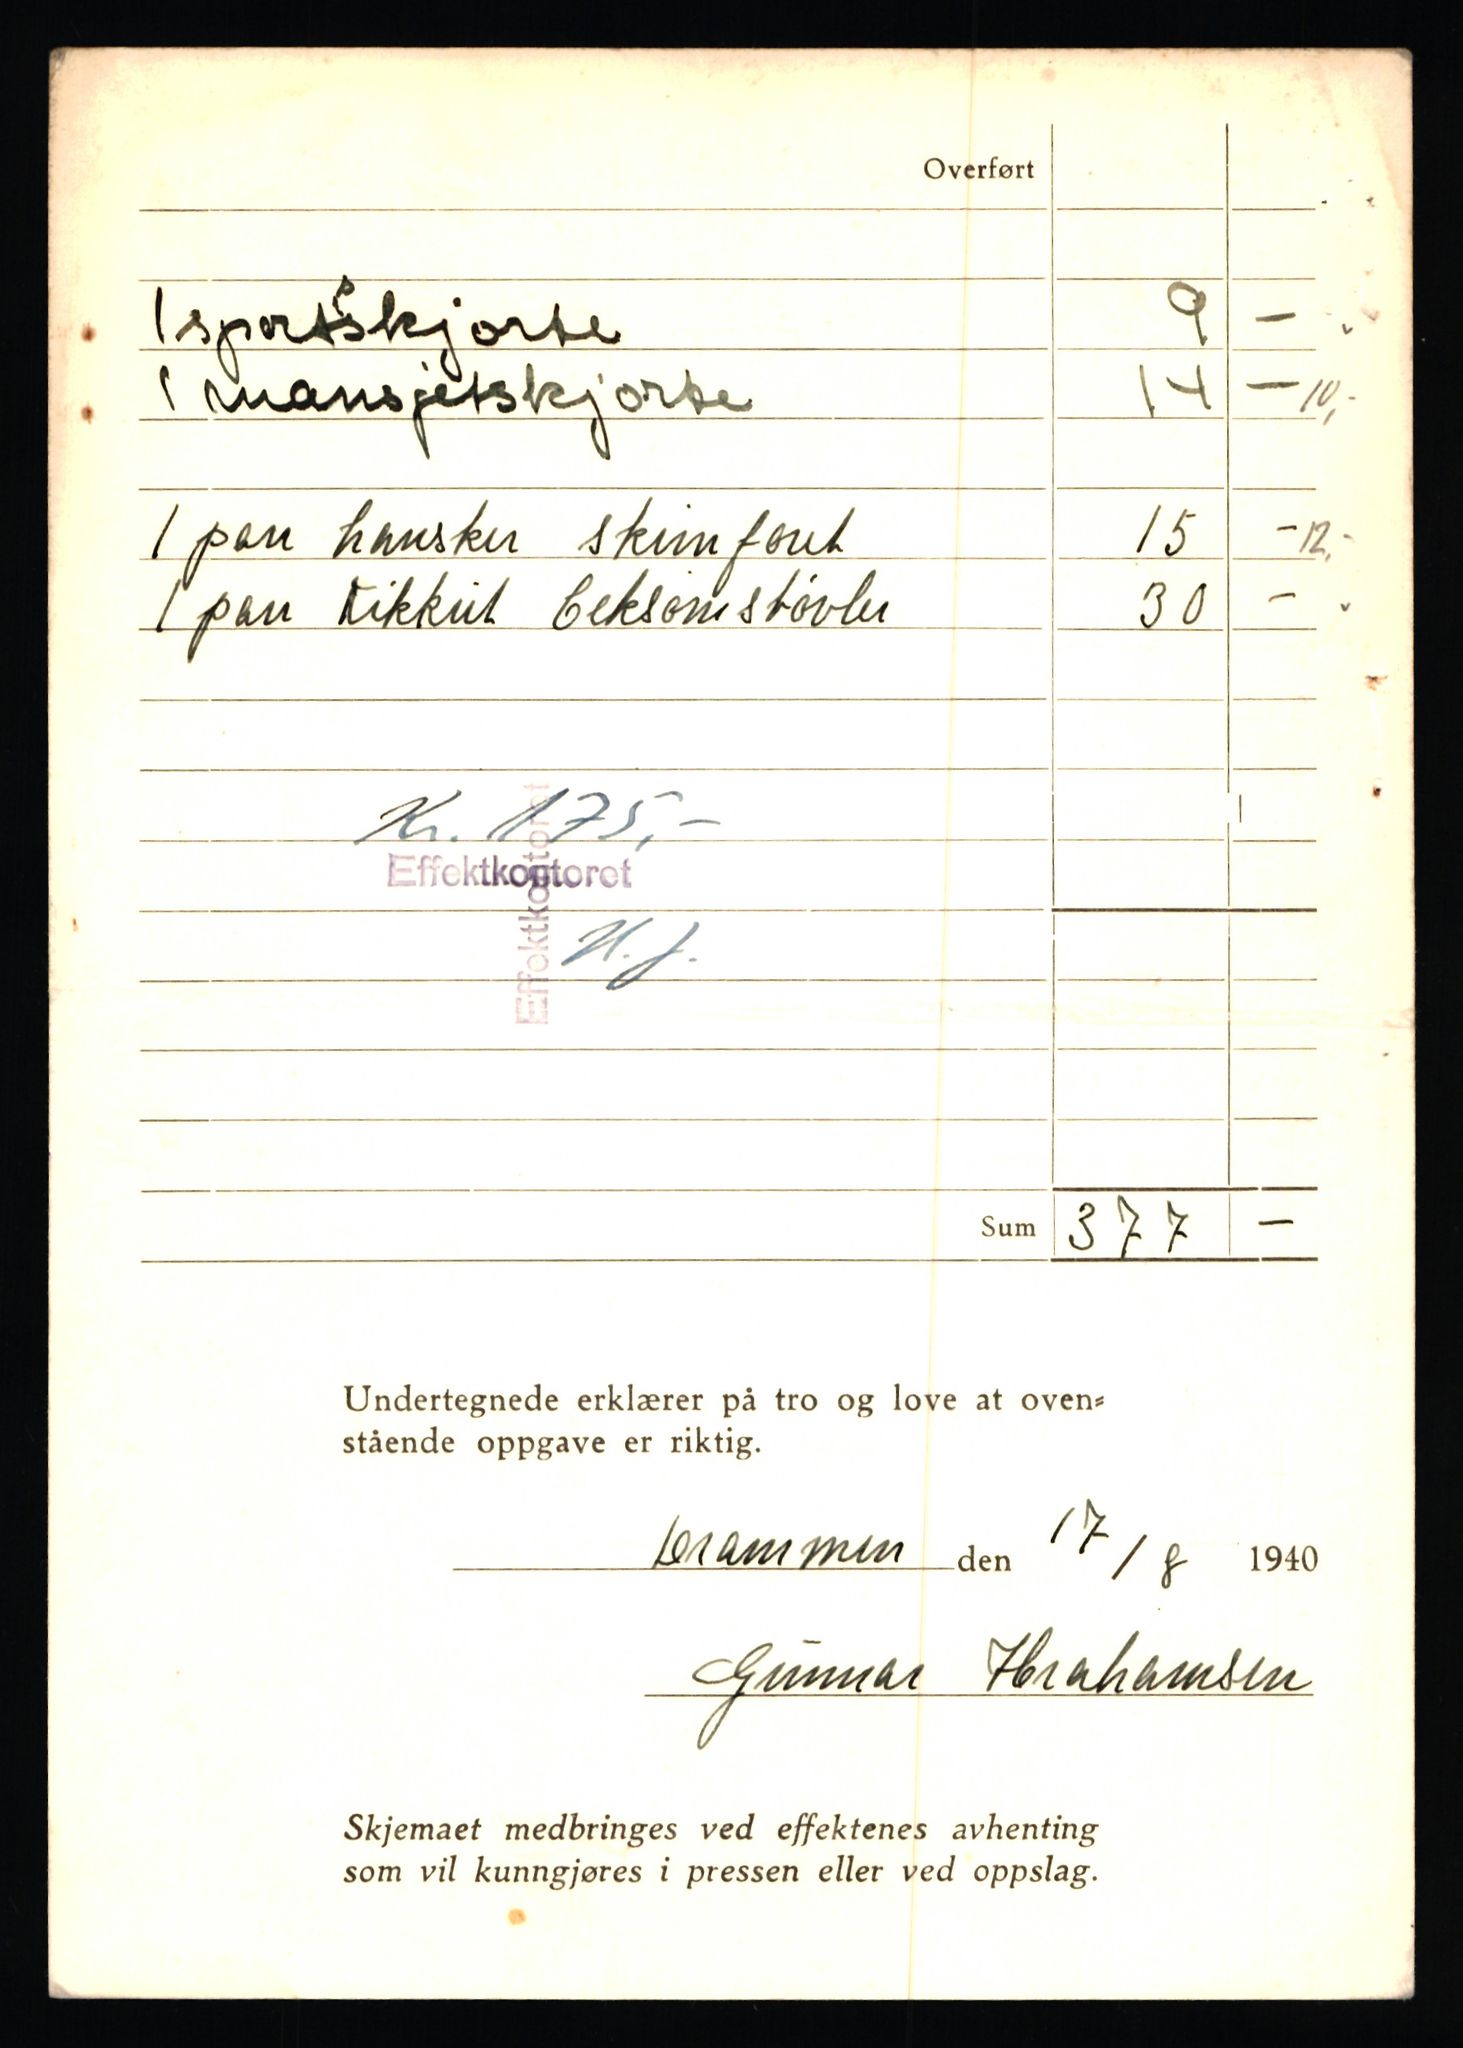 Overført
1 sportsskjorte 9 -
1 mansjetskjorte 14 - 10,-
1 par hansker skinnforet 15 - 12,-
1 par beksømstøvler 30 -
Kr. 175,-
Effektkontoret
Effektkontoret
H. J.
Sum 377 -
Undertegnede erklærer på tro og love at oven-
stående oppgave er riktig.
Drammen den 17/8 1940
Gunnar Abrahamsen
Skjemaet medbringes ved effektenes avhenting
som vil kunngjøres i pressen eller ved oppslag.